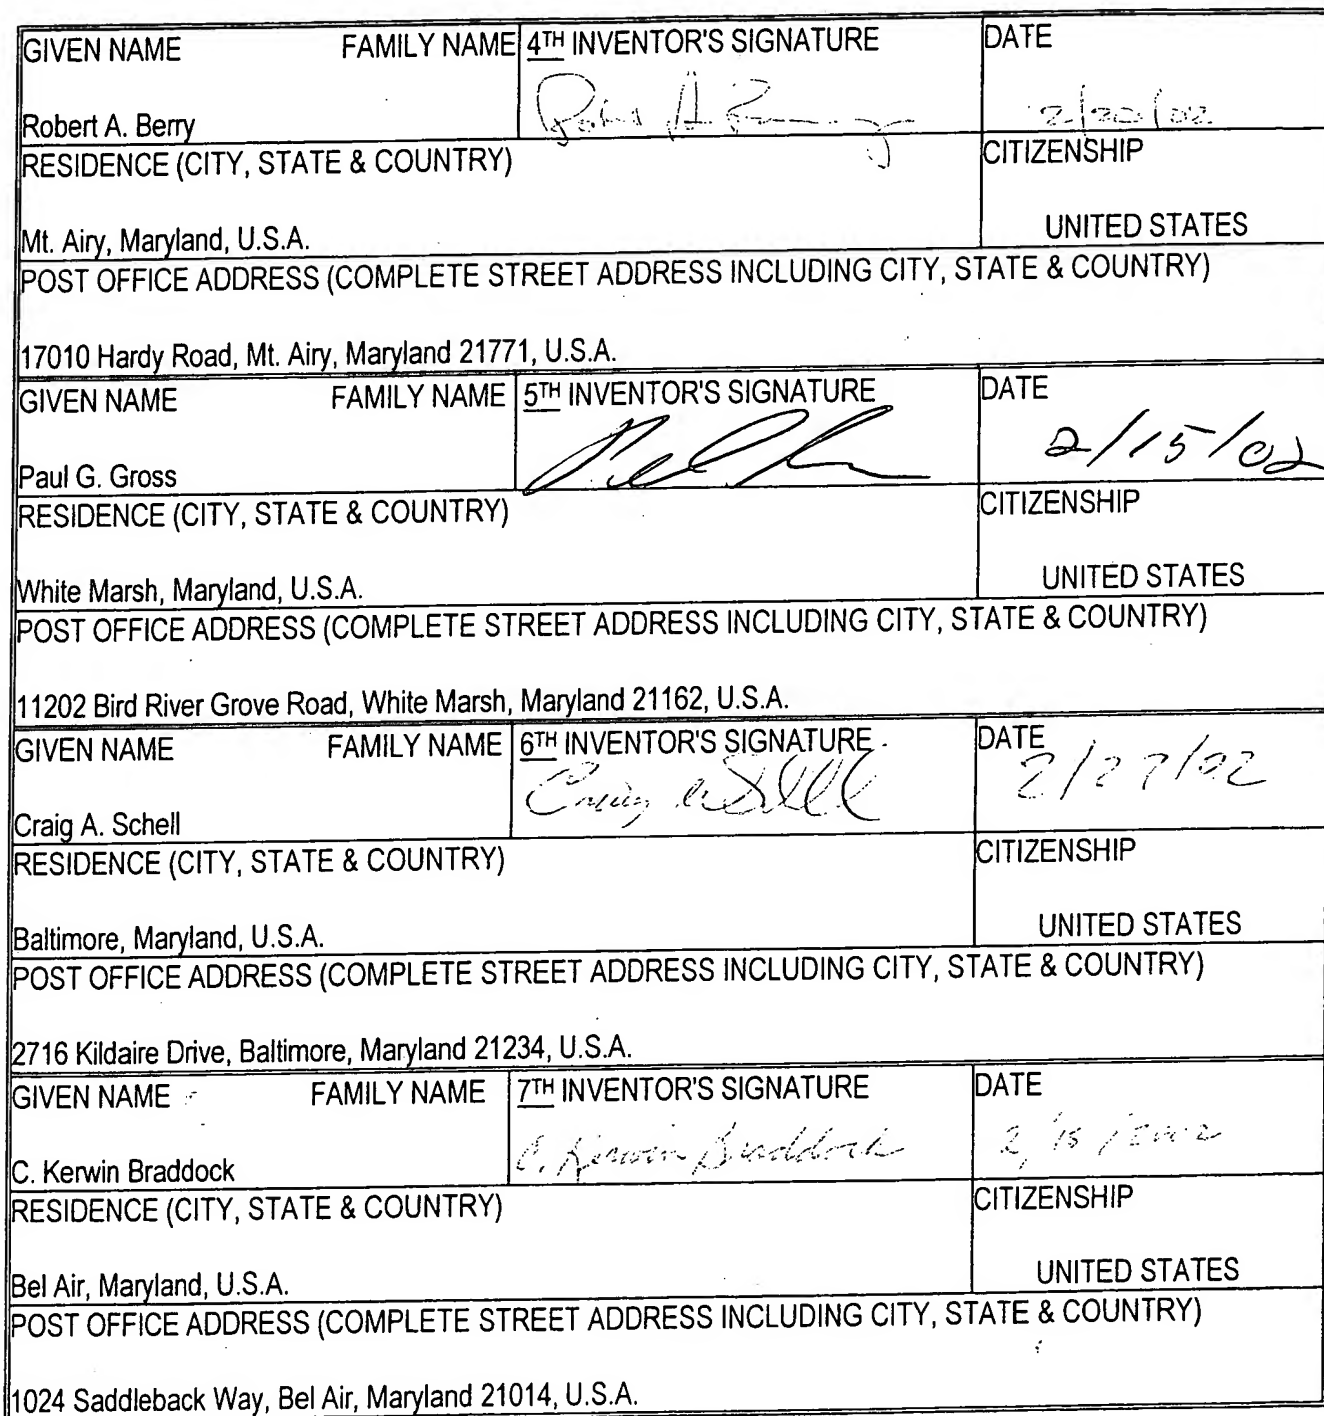 GIVEN NAME FAMILY NAME 4TH INVENTOR'S SIGNATURE DATE
Robert A. Berry 2/20/02
RESIDENCE (CITY, STATE & COUNTRY) CITIZENSHIP
Mt. Airy, Maryland, U.S.A. UNITED STATES
POST OFFICE ADDRESS (COMPLETE STREET ADDRESS INCLUDING CITY, STATE & COUNTRY)
17010 Hardy Road, Mt. Airy, Maryland 21771, U.S.A.
GIVEN NAME FAMILY NAME 5TH INVENTOR'S SIGNATURE DATE
Paul G. Gross 2/15/02
RESIDENCE (CITY, STATE & COUNTRY) CITIZENSHIP
White Marsh, Maryland, U.S.A. UNITED STATES
POST OFFICE ADDRESS (COMPLETE STREET ADDRESS INCLUDING CITY, STATE & COUNTRY)
11202 Bird River Grove Road, White Marsh, Maryland 21162, U.S.A.
GIVEN NAME FAMILY NAME 6TH INVENTOR'S SIGNATURE DATE
Craig A. Schell Craig A Schell 2/27/02
RESIDENCE (CITY, STATE & COUNTRY) CITIZENSHIP
Baltimore, Maryland, U.S.A. UNITED STATES
POST OFFICE ADDRESS (COMPLETE STREET ADDRESS INCLUDING CITY, STATE & COUNTRY)
2716 Kildaire Drive, Baltimore, Maryland 21234, U.S.A.
GIVEN NAME FAMILY NAME 7TH INVENTOR'S SIGNATURE DATE
C. Kerwin Braddock C. Kerwin Braddock 2/15/2002
RESIDENCE (CITY, STATE & COUNTRY) CITIZENSHIP
Bel Air, Maryland, U.S.A. UNITED STATES
POST OFFICE ADDRESS (COMPLETE STREET ADDRESS INCLUDING CITY, STATE & COUNTRY)
1024 Saddleback Way, Bel Air, Maryland 21014, U.S.A.